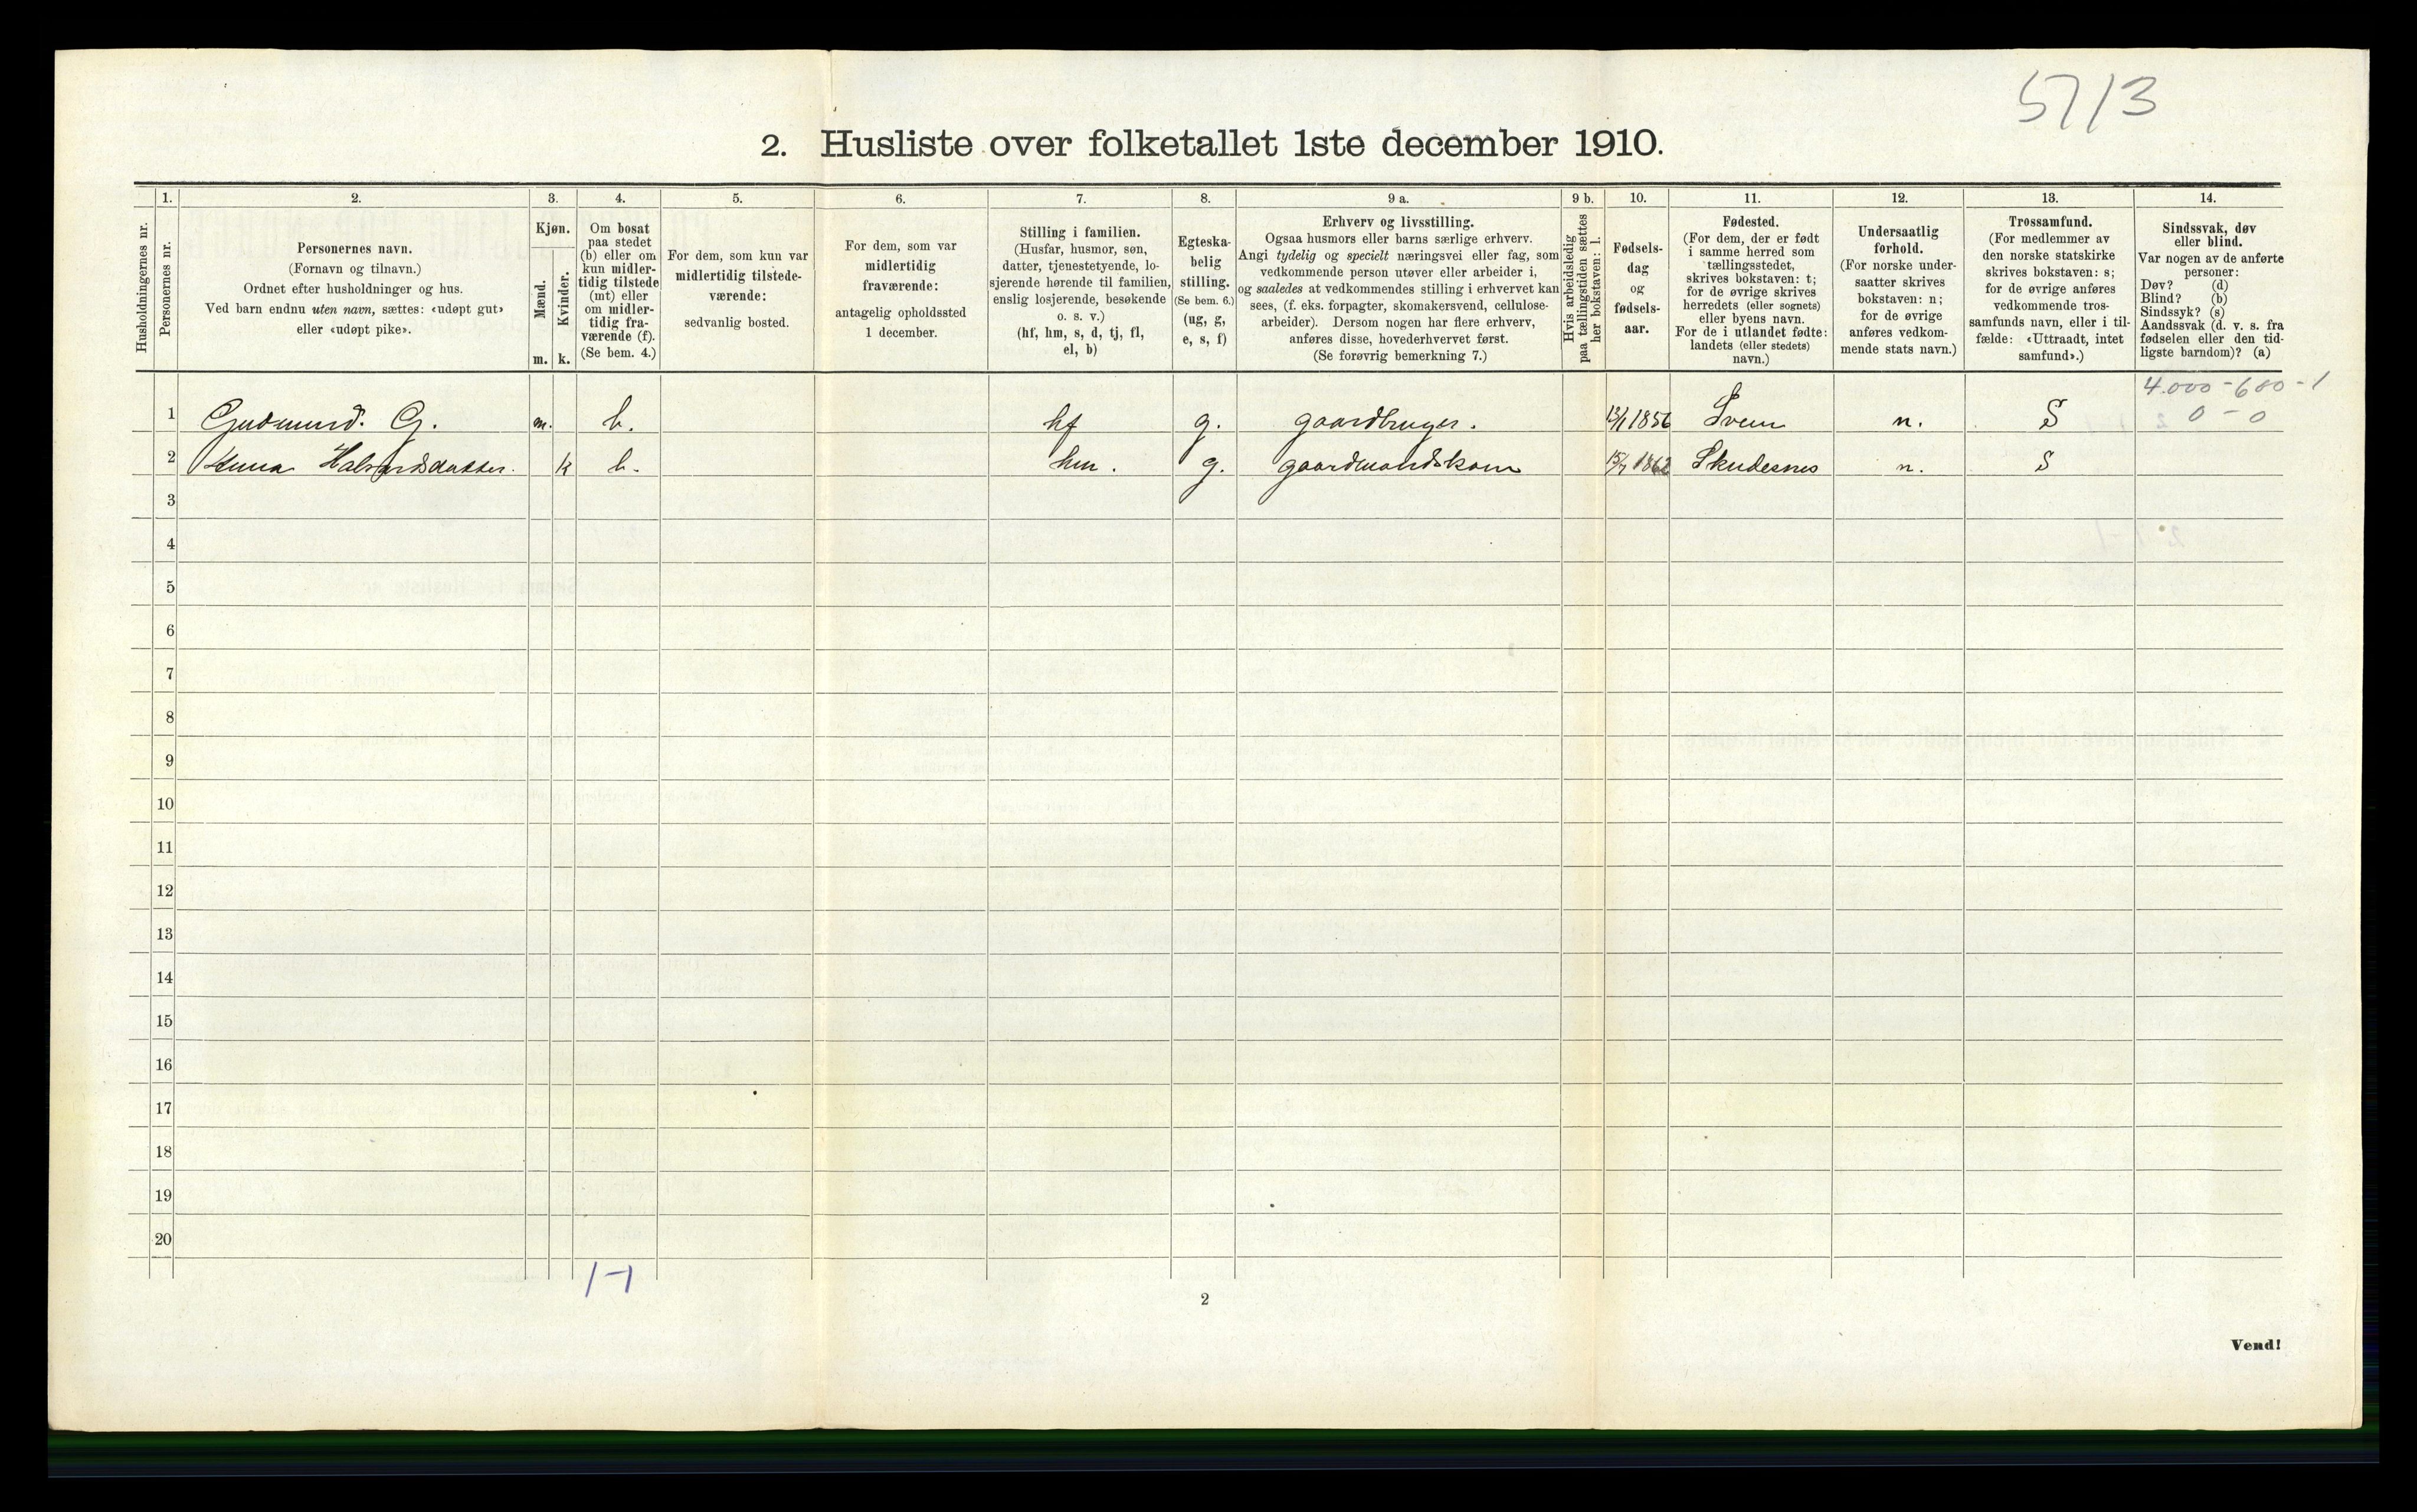 57/3
2. Husliste over folketallet 1ste december 1910.
Husholdningernes nr.
1.
Personernes nr.
2.
Personernes navn.
(Fornavn og tilnavn.)
Ordnet efter husholdninger og hus.
Ved barn endnu uten navn, sættes: «udøpt gut»
eller «udøpt pike».
3.
Kjøn.
Mænd.
m.
Kvinder.
k.
4.
Om bosat
paa stedet
(b) eller om
kun midler-
tidig tilstede
(mt) eller
om midler-
tidig fra-
værende (f).
(Se bem. 4.)
5.
For dem, som kun var
midlertidig tilstede-
værende:
sedvanlig bosted.
6.
For dem, som var
midlertidig
fraværende:
antagelig opholdssted
1 december.
7.
Stilling i familien.
(Husfar, husmor, søn,
datter, tjenestetyende, lo-
sjerende hørende til familien,
enslig losjerende, besøkende
o. s. v.)
(hf, hm, s, d, tj, fl,
el, b)
8.
Egteska-
belig
stilling.
(Se bem. 6.)
(ug, g,
e, s, f)
9 a.
Erhverv og livsstilling.
Ogsaa husmors eller barns særlige erhverv.
Angi tydelig og specielt næringsvei eller fag, som
vedkommende person utøver eller arbeider i,
og saaledes at vedkommendes stilling i erhvervet kan
sees, (f. eks. forpagter, skomakersvend, cellulose-
arbeider). Dersom nogen har flere erhverv,
anføres disse, hovederhvervet først.
(Se forøvrig bemerkning 7.)
9 b.
Hvis arbeidsledig
paa tællingstiden sættes
her bokstaven: l.
10.
Fødsels-
dag
og
fødsels-
aar.
11.
Fødested.
(For dem, der er født
i samme herred som
tællingsstedet,
skrives bokstaven: t;
for de øvrige skrives
herredets (eller sognets)
eller byens navn.
For de i utlandet fødte:
landets (eller stedets)
navn.)
12.
Undersaatlig
forhold.
(For norske under-
saatter skrives
bokstaven: n;
for de øvrige
anføres vedkom-
mende stats navn.)
13.
Trossamfund.
(For medlemmer av
den norske statskirke
skrives bokstaven: s;
for de øvrige anføres
vedkommende tros-
samfunds navn, eller i til-
fælde: «Uttraadt, intet
samfund».)
14.
Sindssvak, døv
eller blind.
Var nogen av de anførte
personer:
Døv? (d)
Blind? (b)
Sindssyk? (s)
Aandssvak (d. v. s. fra
fødselen eller den tid-
ligste barndom)? (a)
4.000 - 680 - 1
0 - 0
1 Gudmund. G. m. b. hf g. gaardbruger. 1856 n. S
2 Anna Halvardsdatter. k b. hm. g. gaardmandskone 15/7 1862 Skudesnes n. S
3
4
5
6
7
8
9
10
11
12
13
14
15
16
17
18
19
20
1-1
2
Vend!